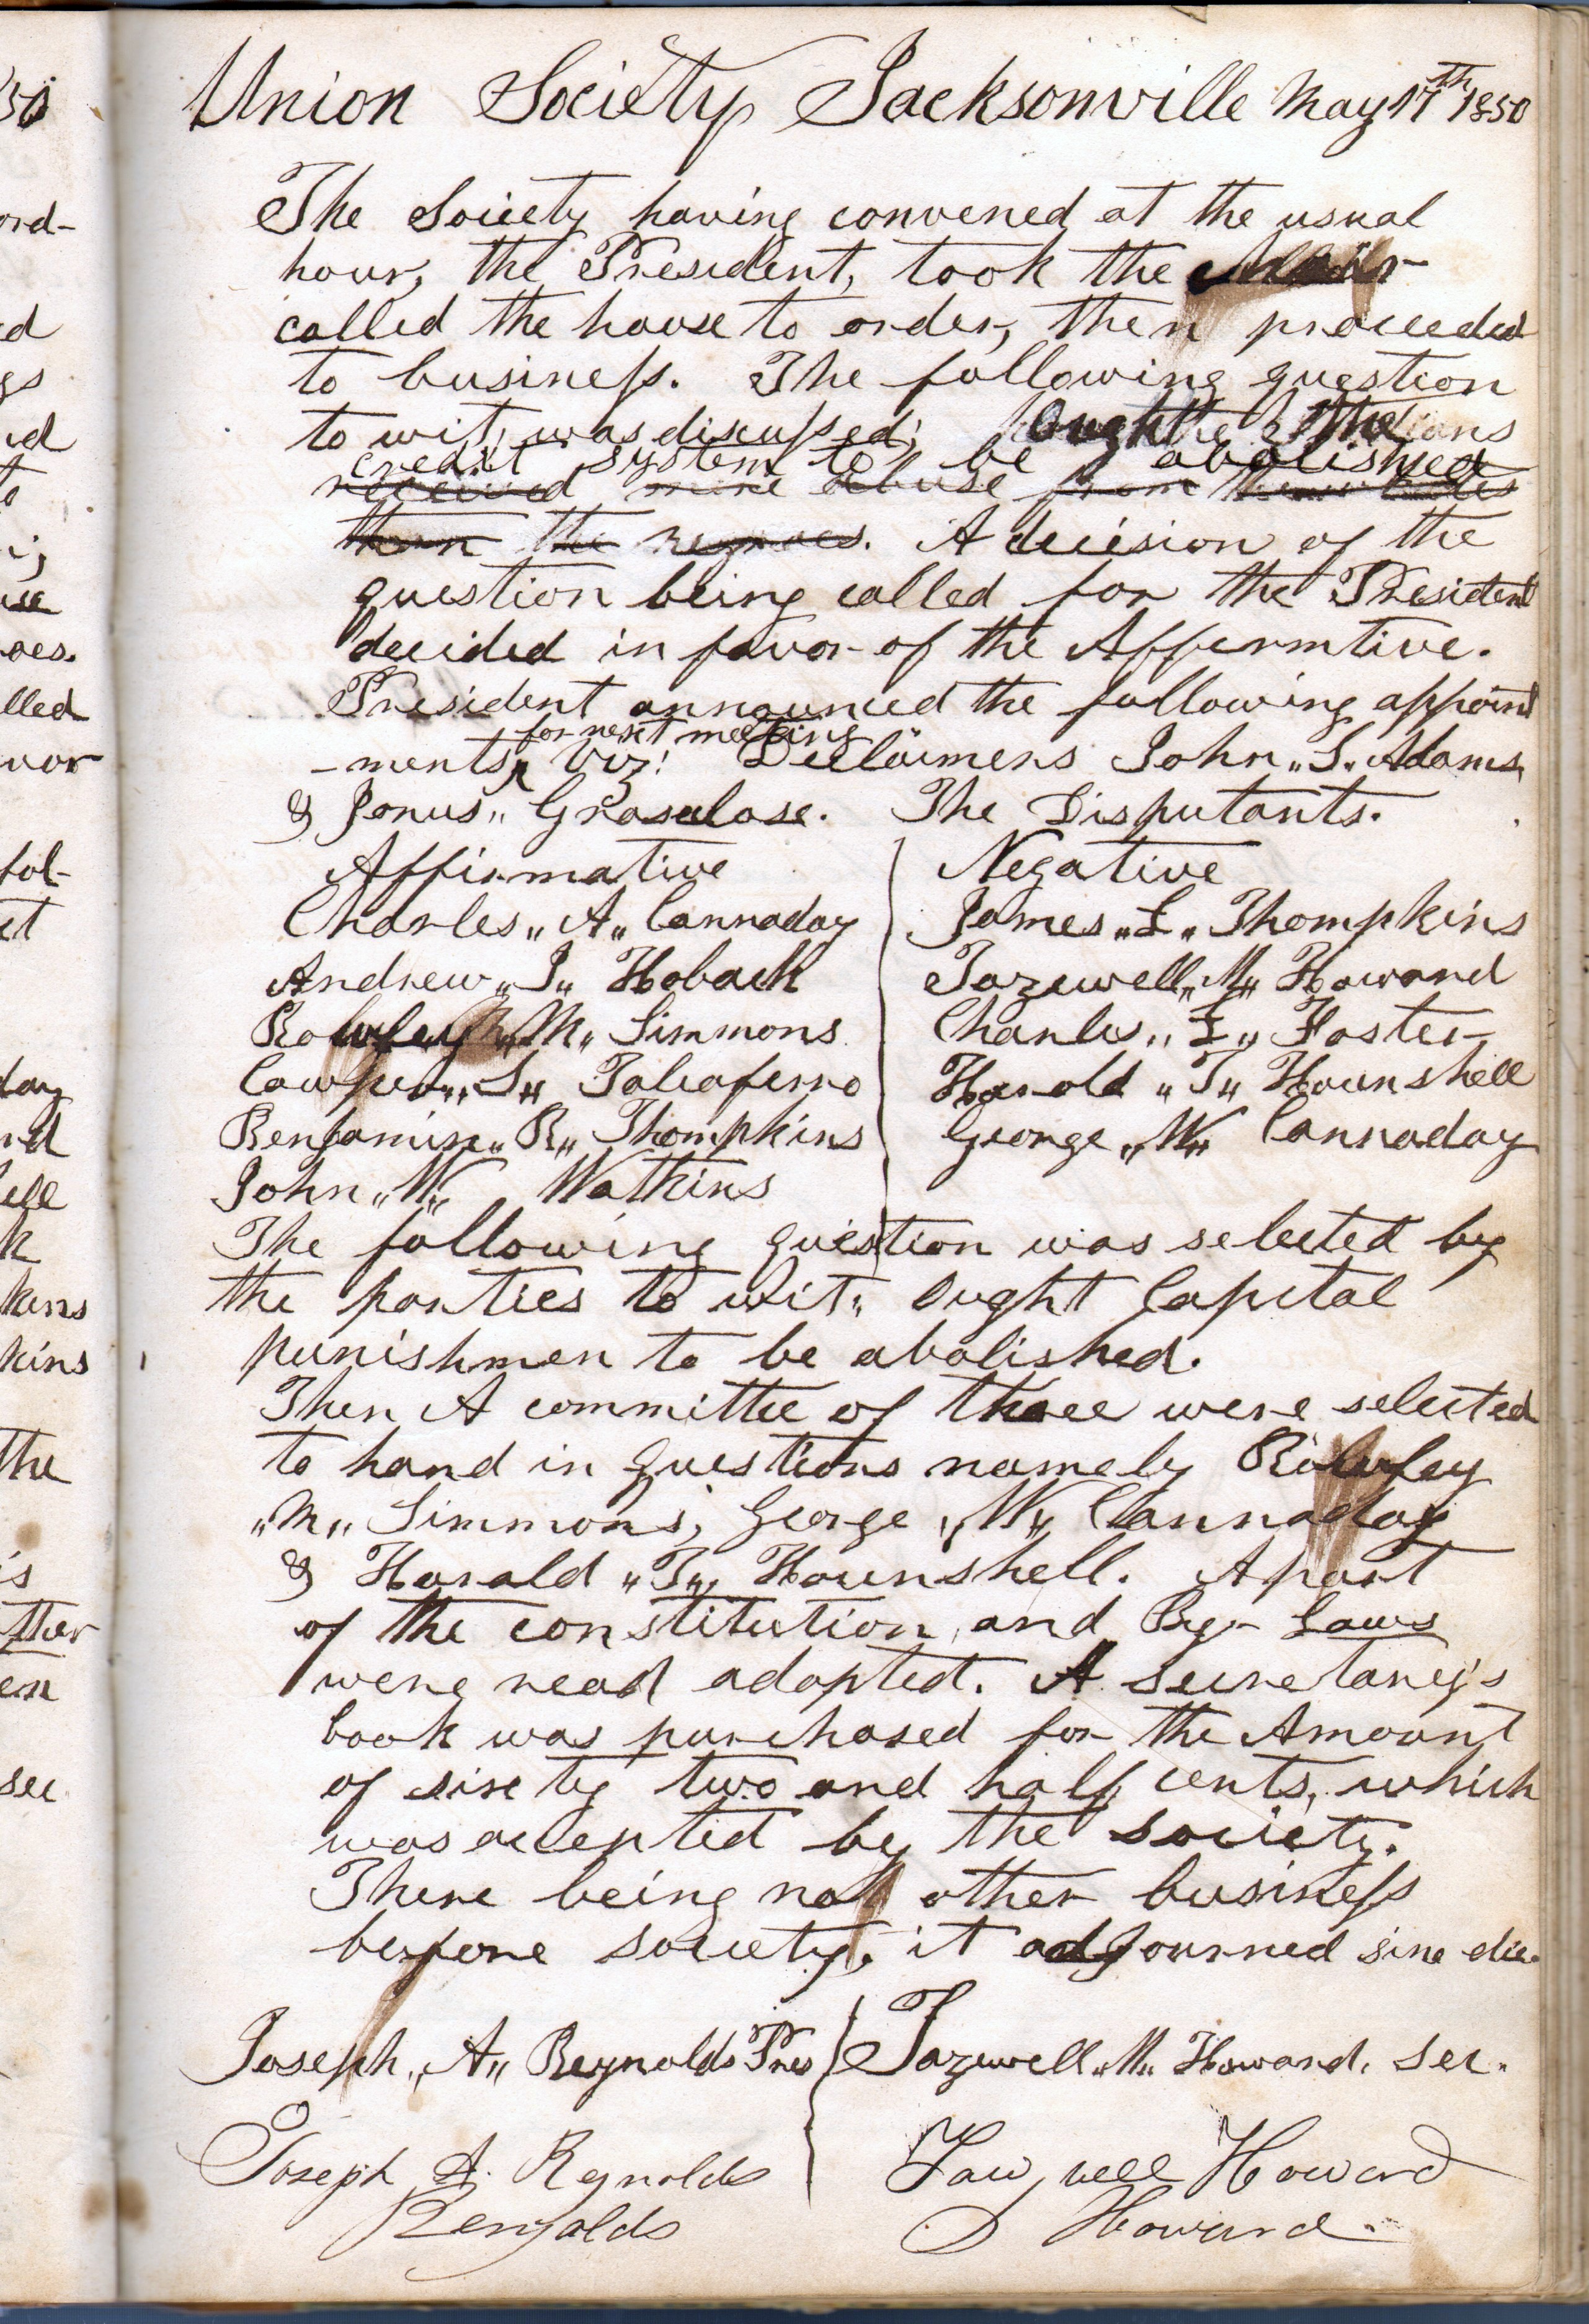 Union Society Jacksonville May 17th 1850
The Society having convened at the usual
hour, the President, took the Chair
called the house to order, then proceeded
to business. The following question
to wit, was discussed; Ought the
credit system to be abolished
received more abuse from
than the negroes. A decision of the
question being called for the President
decided in favor of the Affermtive.
President announced the following appoint
for next meeting
-ments, Viz: Declaimers John "S. Adams
& Jonus " Graselose. The Disputants.
Affirmative
Negative
Charles "A" Cannaday
James "L" Thompkins
Andrew "J" Hoback
Tazewell "M" Howard
Rowley "M" Simmons
Charles "F" Foster
Cowper "S" Taliaferro
Harold "T" Hounshell
Benjamin "R" Thompkins
George "W" Cannaday
John "W" Watkins
The following question was selected by
the parties to wit: Ought Capital
punishmen to be abolished.
Then A committee of three were selected
to hand in questions namely Rowley
"M" Simmons, George "W" Cannaday
& Harald "T" Hounshell. A part
of the constitution and By-Laws
were read adopted. A secretary's
book was purchased for the Amount
of sixty two and half cents, which
was accepted by the society.
There being no other business
before society, it adjourned sine die.
Joseph "A" Reynolds Pres
Tazewell "M" Howard. Sec.
Joseph A. Rynolds
Tawzwell Howard
Renyolds
Howard.